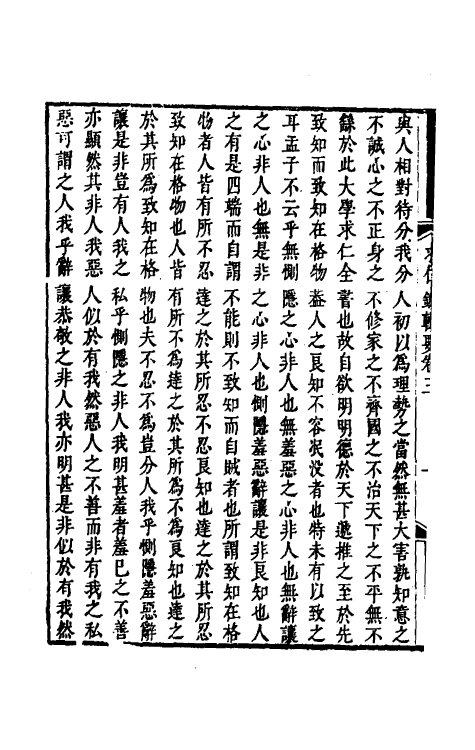 與人相對待分我分人初以爲理勢之當然無甚大害孰知意之
不誠心之不正身之不修家之不齊國之不治天下之不平無不
餘於此大學求仁全書也故自欲明明德於天下遞推之至於先
致知而致知在格物葢人之良知不容冺沒者也特未有以致之
耳孟子不云乎無惻隱之心非人也無羞惡之心非人也無辭讓
之心非人也無是非之心非人也惻隱羞惡辭讓是非良知也人
之有是四端而自謂不能則不致知而自賊者也所謂致知在格
物者人皆有所不忍達之於其所忍不忍良知也達之於其所忍
致知在格物也人皆有所不爲達之於其所爲不爲良知也達之
於其所爲致知在格物也夫不忍不爲豈分人我乎惻隱羞惡辭
讓是非豈有人我之私乎惻隱之非人我明甚羞者羞已之不善
亦顯然其非人我惡人似於有我然惡人之不善而非有我之私
惡可謂之人我乎辭讓恭敬之非人我亦明甚是非似於有我然
求仁錄輯要卷三
一